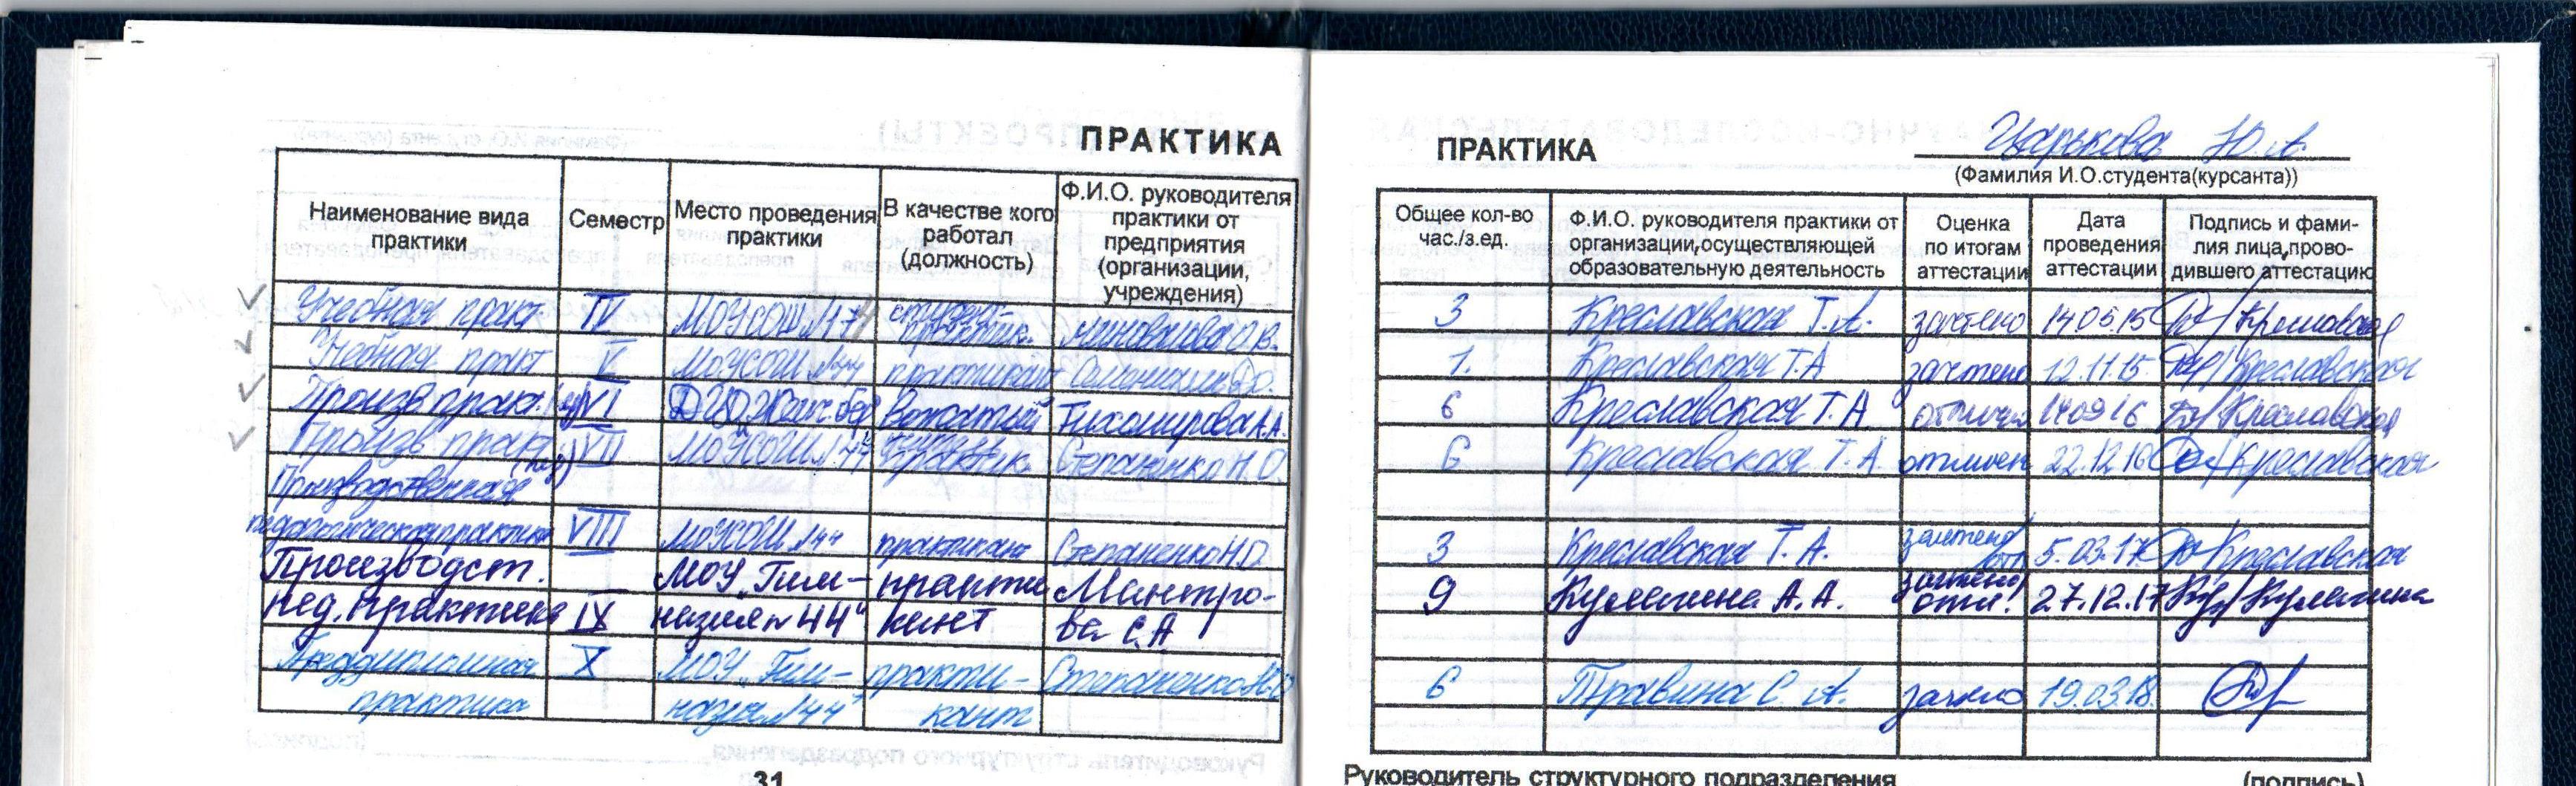 ПРАКТИКА
Наименование вида практики
Семестр
Место проведения практики
В качестве кого работал (должность)
Ф.И.О. руководителя практики от предприятия (организации, учреждения)
Учебная практ IV МОУСОШ №44 студент-практик. О.В.
Учебная практ V МОУСОШ №44 практикант
Произв практ. VI вожатый Тихомирова А.А.
Произв практ VII МОУСОШ №44 Степаненко Н.О.
Производственная
педагогическая практика VIII МОУСОШ №44 практикант Степаненко Н.О.
Производст. МОУ „Гим- практи Мантро-
пед. практика IX назия №44" кант ва С.А
Преддипломная X МОУ „Гим- практи- Степаненко Н.О
практика назия №44" кант
31
ПРАКТИКА
Царькова Ю.А.
(Фамилия И.О.студента(курсанта))
Общее кол-во час./з.ед.
Ф.И.О. руководителя практики от организации,осуществляющей образовательную деятельность
Оценка по итогам аттестации
Дата проведения аттестации
Подпись и фами- лия лица,прово- дившего аттестацию
3 Креславская Т.А. зачтено 14.05.15 Креславская
1. Креславская Т.А зачтено 12.11.15 Креславская
6 Креславская Т.А. отлично 14.09.16 Креславская
6 Креславская Т.А отлично 22.12.16 Креславская
3 Креславская Т.А. зачтено/отл 5.03.17 Креславская
9 Кулагина А.А. зачтено/отл. 27.12.17 Кулагина
6 Травина С.А. зачтено 19.03.18
Руководитель структурного подразделения
(подпись)